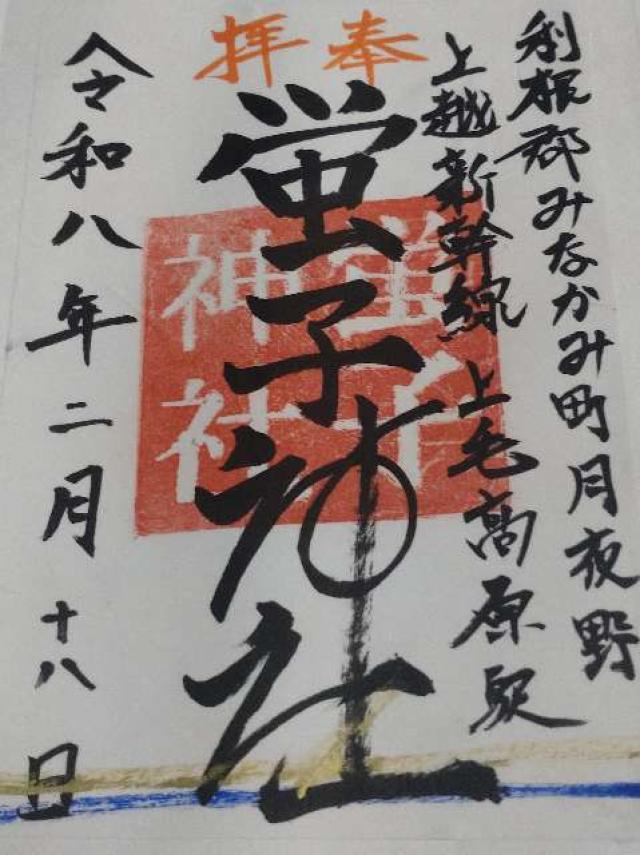 利根郡みなかみ町月夜野
上越新幹線 上毛高原駅
奉拝
蛍子神社
蛍子
神社
令和八年二月十八日